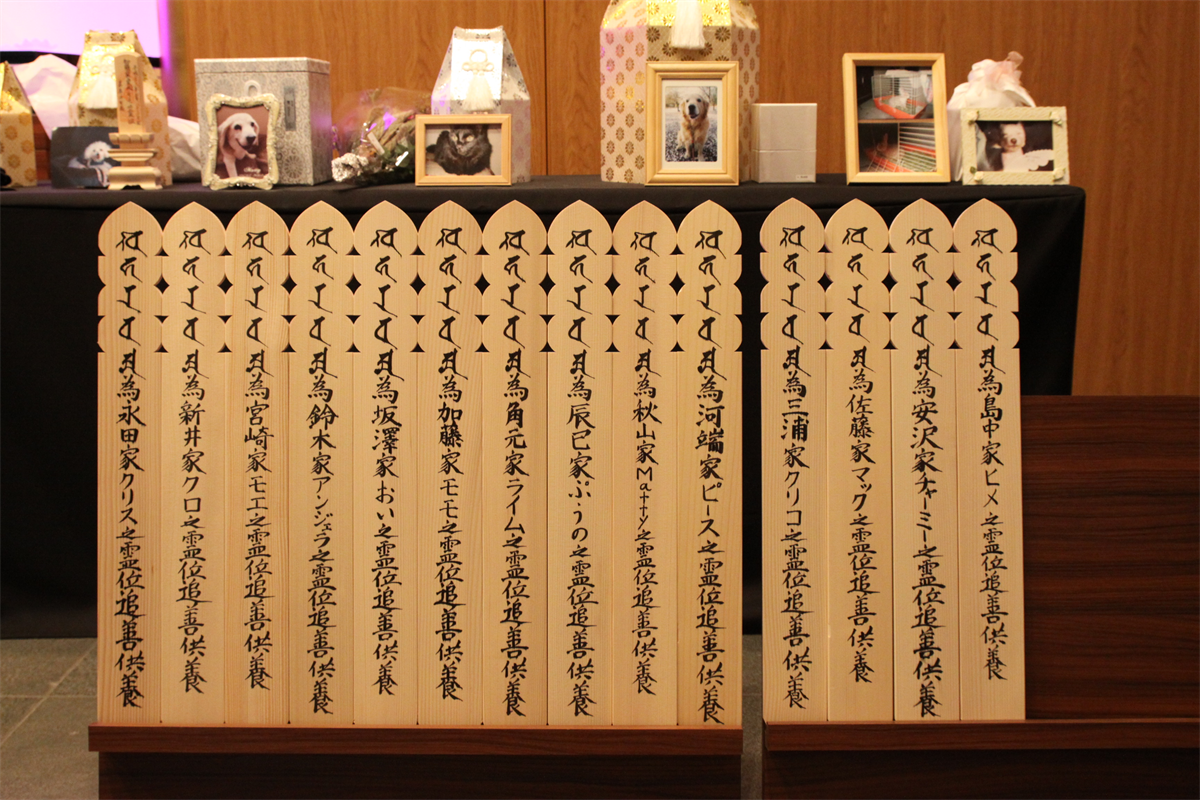 為島中家ヒメ之霊位追善供養
為安沢家チャーミー之霊位追善供養
為佐藤家マック之霊位追善供養
為三浦家クリコ之霊位追善供養
為河端家ピース之霊位追善供養
為秋山家Matty之霊位追善供養
為辰巳家ぷうの之霊位追善供養
為角元家ライム之霊位追善供養
為加藤家モモ之霊位追善供養
為坂澤家おい之霊位追善供養
為鈴木家アンジェラ之霊位追善供養
為宮崎家モエ之霊位追善供養
為新井家クロ之霊位追善供養
為永田家クリス之霊位追善供養